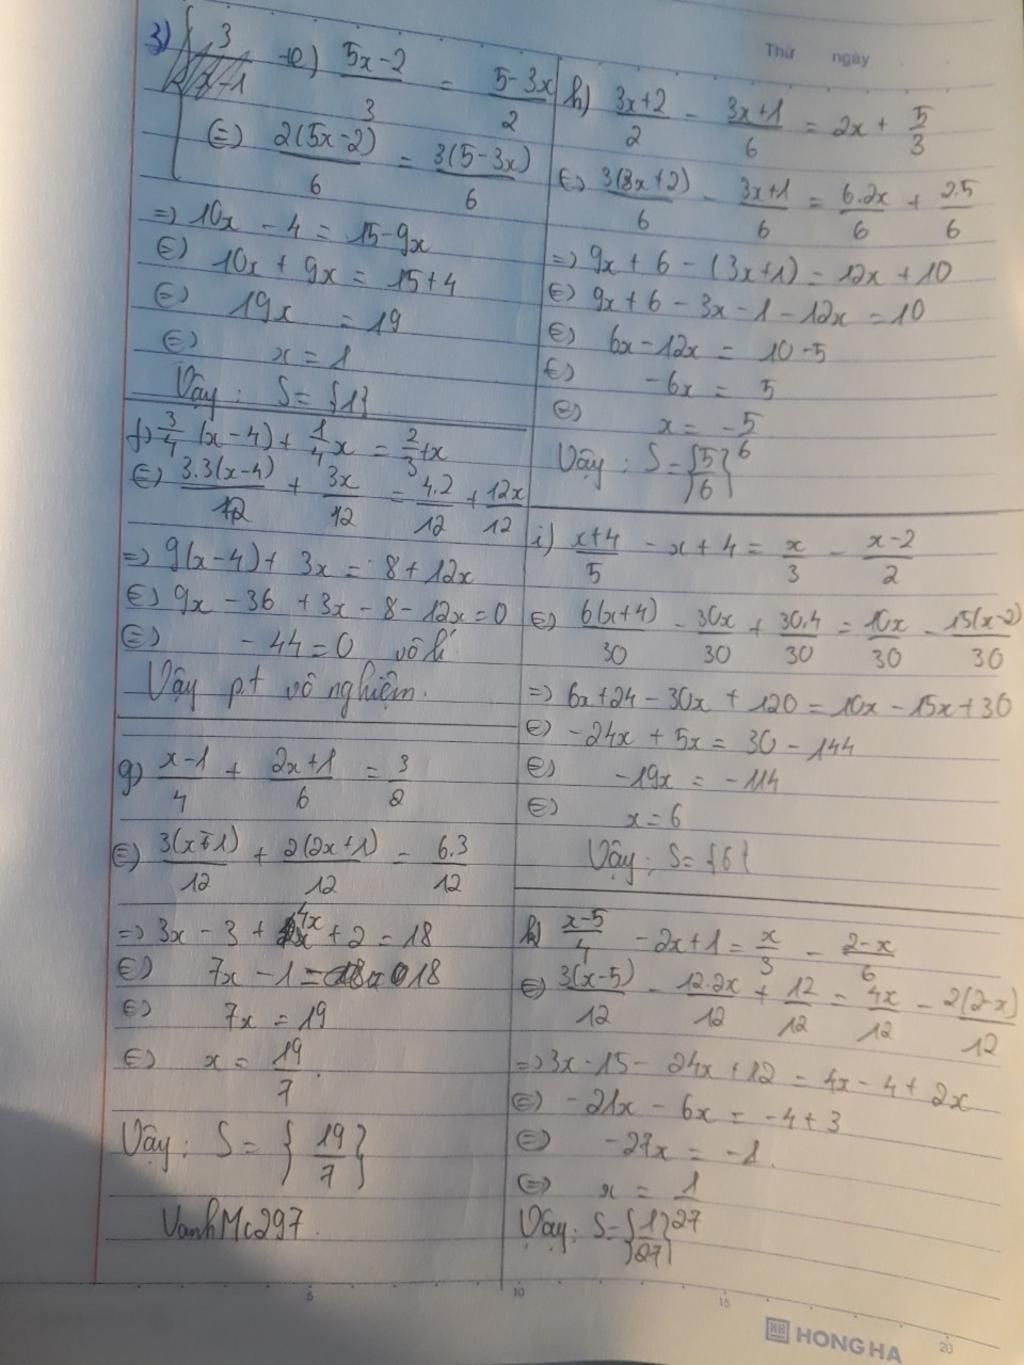 Thứ ngày
3) e) (5x-2)/3 = (5-3x)/2
(=) 2(5x-2)/6 = 3(5-3x)/6
=> 10x - 4 = 15-9x
(=) 10x + 9x = 15+4
(=) 19x = 19
(=) x = 1
Vậy : S = {1}
f) 3/4 (x-4) + 1/4 x = 2/3 + x
(=) 3.3(x-4)/12 + 3x/12 = 4.2/12 + 12x/12
=> 9(x-4) + 3x = 8 + 12x
(=) 9x - 36 + 3x - 8 - 12x = 0
(=) - 44 = 0 vô lí
Vậy pt vô nghiệm.
g) (x-1)/4 + (2x+1)/6 = 3/2
(=) 3(x-1)/12 + 2(2x+1)/12 = 6.3/12
=> 3x - 3 + 4x + 2 = 18
(=) 7x - 1 = 18
(=) 7x = 19
(=) x = 19/7.
Vậy : S = {19/7}
VanhMc297.
h) (3x+2)/2 - (3x+1)/6 = 2x + 5/3
(=) 3(3x+2)/6 - (3x+1)/6 = 6.2x/6 + 2.5/6
=> 9x + 6 - (3x+1) = 12x + 10
(=) 9x + 6 - 3x - 1 - 12x = 10
(=) 6x - 12x = 10 - 5
(=) -6x = 5
(=) x = -5/6
Vậy : S = {5/6}
i) (x+4)/5 - x + 4 = x/3 - (x-2)/2
(=) 6(x+4)/30 - 30x/30 + 30.4/30 = 10x/30 - 15(x-2)/30
=> 6x + 24 - 30x + 120 = 10x - 15x + 30
(=) -24x + 5x = 30 - 144
(=) -19x = -114
(=) x = 6
Vậy : S = {6}
k) (x-5)/4 - 2x + 1 = x/3 - (2-x)/6
(=) 3(x-5)/12 - 12.2x/12 + 12/12 = 4x/12 - 2(2-x)/12
=> 3x - 15 - 24x + 12 = 4x - 4 + 2x
(=) -21x - 6x = -4 + 3
(=) -27x = -1.
(=) x = 1/27
Vậy : S = {1/27}
5 10 15 20
HONG HA